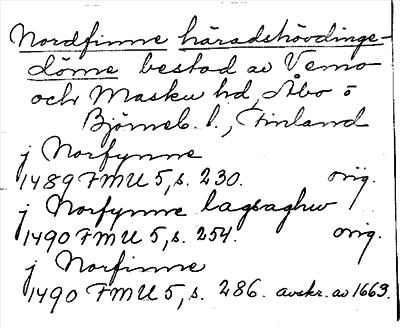 Nordfinne häradshövdinge-
döme bestod av Vemo
och Masku hd, Åbo o
Björneb. l., Finland
j Norfynne
1489 FMU 5, s. 230. orig.
j Norfynne lagsaghw
1490 FMU 5, s. 254. orig.
j Norfinne
1490 FMU 5, s. 286. avskr. av 1669.